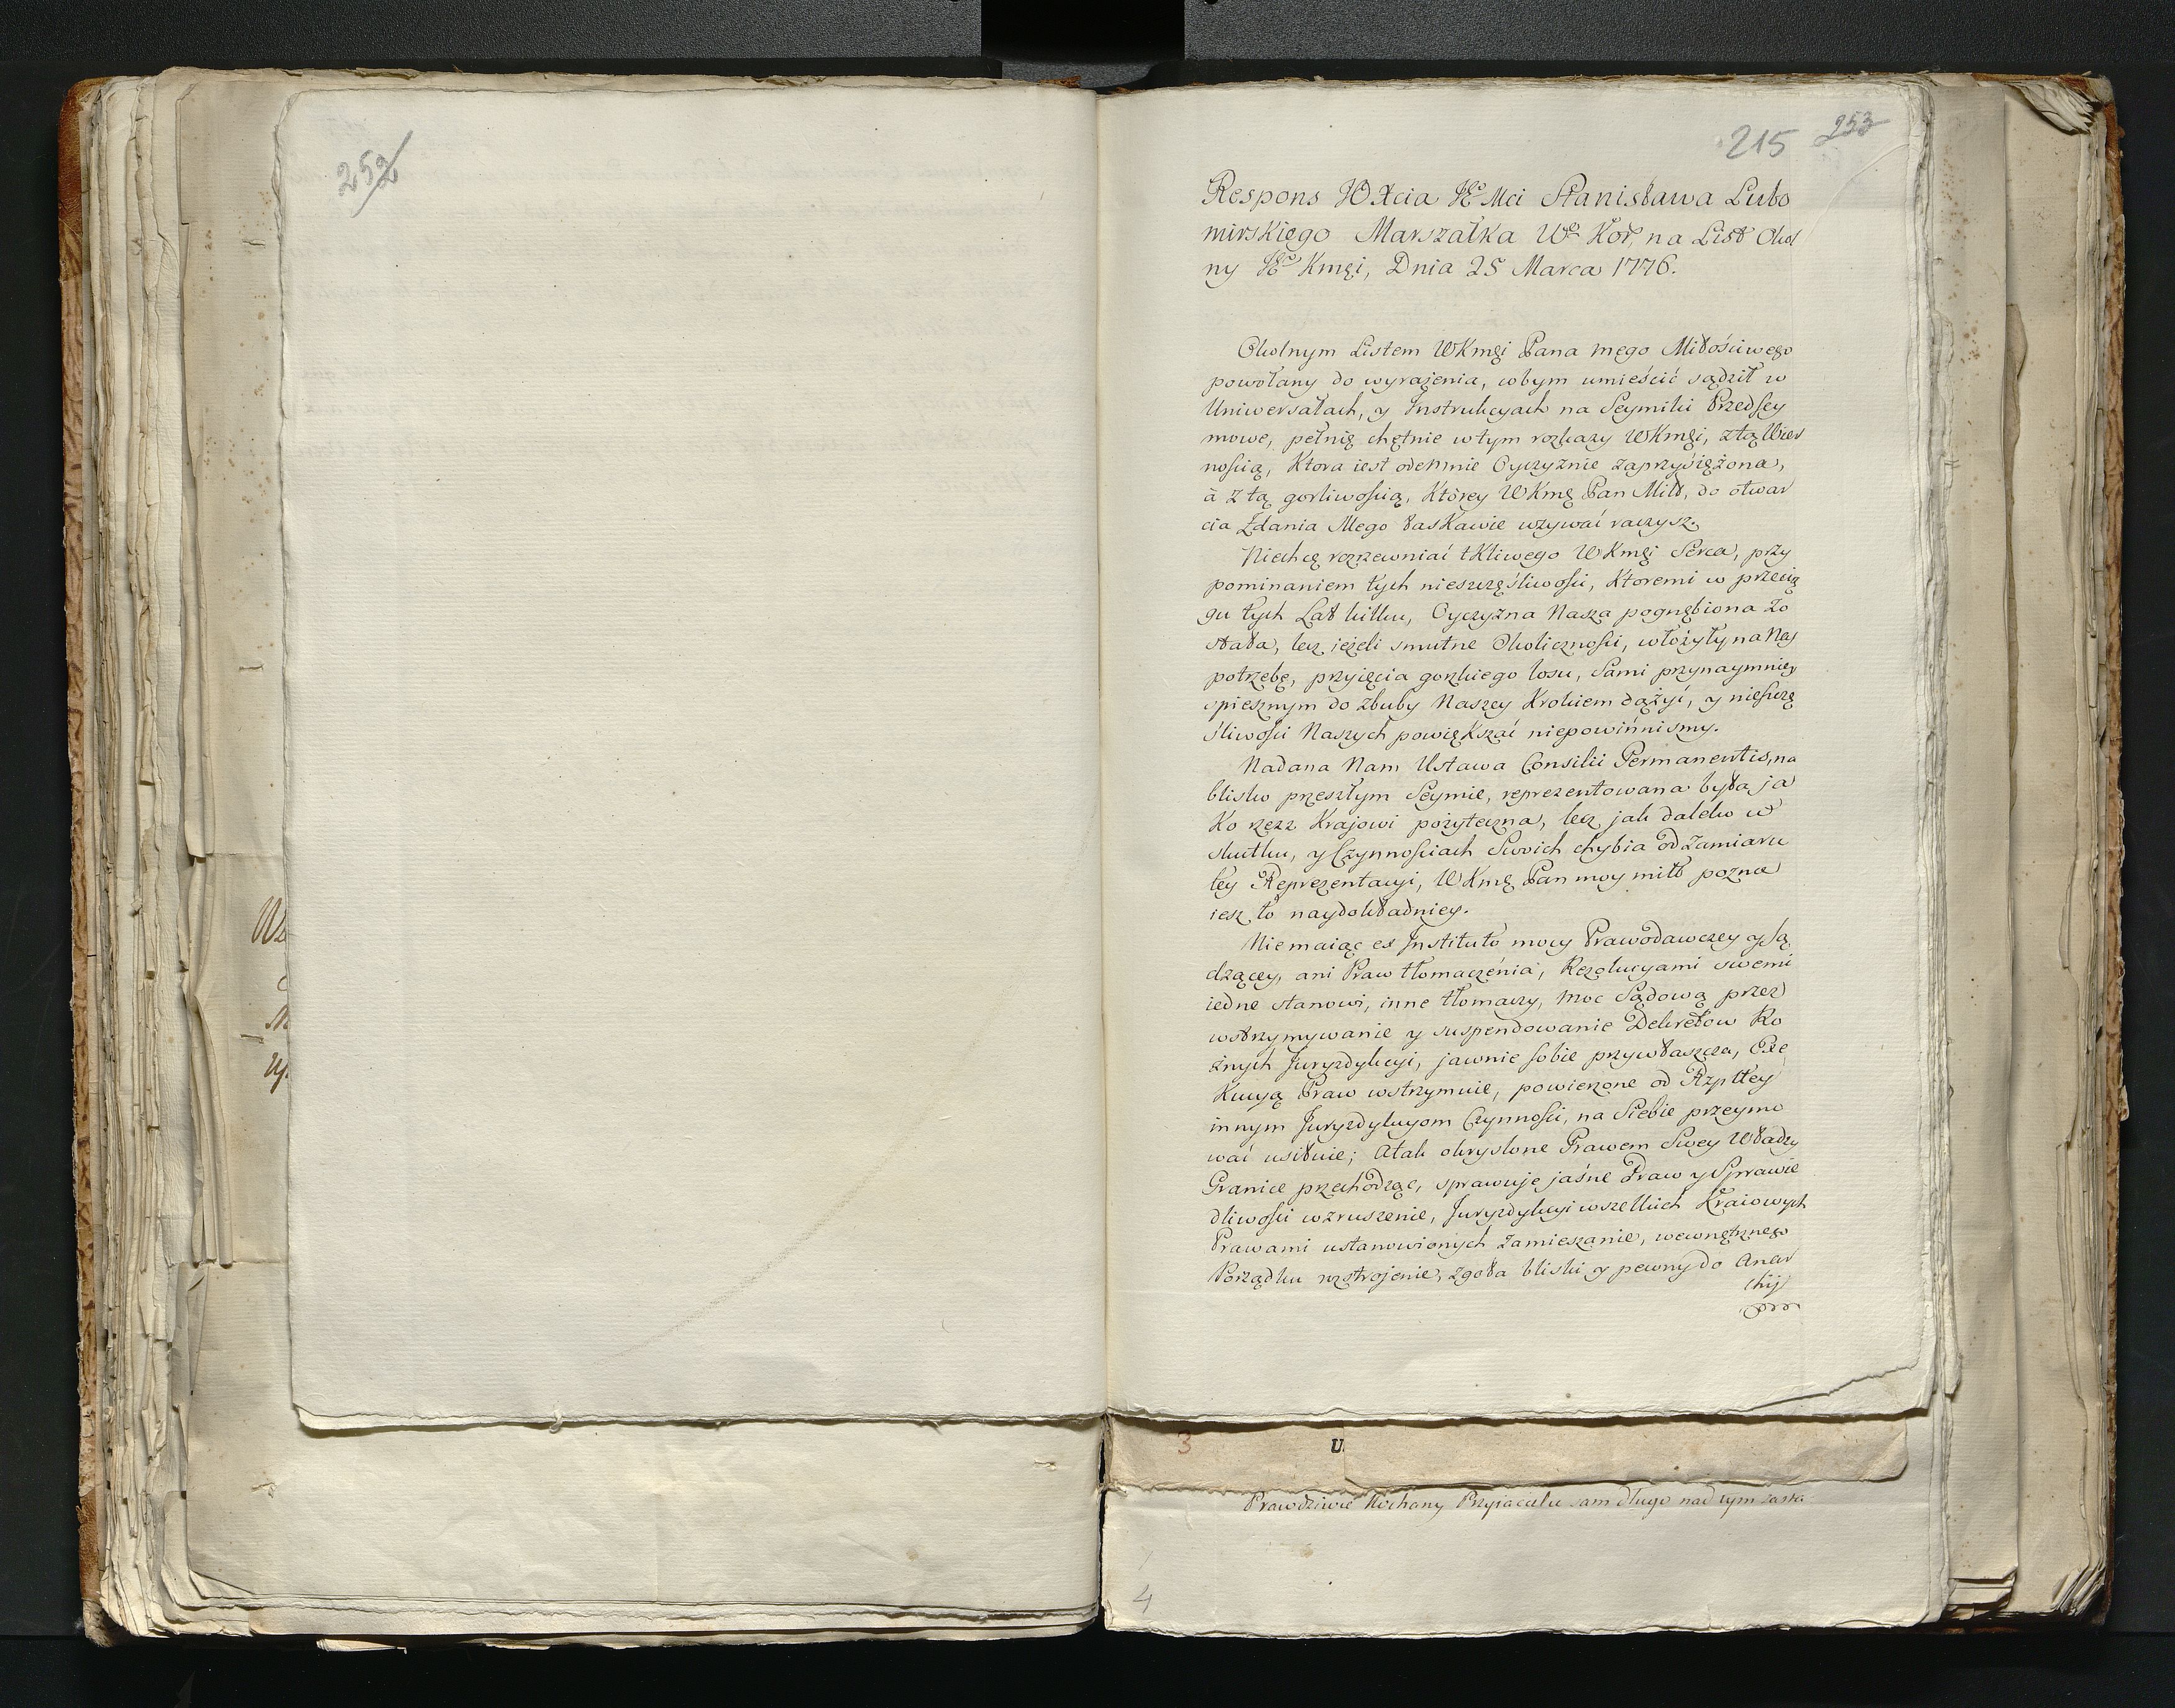 252
215 253
Respons JOXcia JEº Mci Stanisława Lubo
mirskiego Marszałka Wº Kor, na List Okol
ny JEº Kmęi, Dnia 25 Marca 1776.
Okolnym Listem WKmęi Pana mego Miłościwego
powołany do wyrażenia, cobym umieścić sądził w
Uniwersałach, y Instrukcyach na Seymiki Przedsey
mowe, pełnię chętnie w tym rozkazy WKmęi, z tą Wier
nością, Ktora iest odemnie Oyczyznie zaprzysiężona,
à z tą gorliwością, Ktòrey WKmę Pan Miłł, do otwar
cia Zdania Mego łaskawie wzywać raczysz.
Niechcę rozrzewniać tkliwego WKmęi Serca, przy
pominaniem tych nieszczęśliwości, Ktoremi w przecią
gu tych Lat kilku, Oyczyzna Nasza pognębiona zo
stała, lecz jeżeli smutne Okoliczności, włożyły na Nas
potrzebę, przyięcia gorzkiego losu, Sami przynaymniey
spiesznym do zguby Naszey Krokiem dążyć, y nieszczę
śliwości Naszych powiększać niepowinniśmy.
Nadana Nam Ustawa Consilii Permanentis, na
blisko przeszłym Seymie, reprezentowana była ja
ko rzecz Krajowi pożyteczna, lecz jak daleko w
skutku, y Czynnościach Swoich chybia od zamiaru
tey Reprezentacyi, WKmę Pan moy miłł pozna
iesz to naydokładniey.
Niemaiąc ex Instituto mocy Prawodawczey y Są
dzącey, ani Praw tłomaczenia, Rezolucyami swemi
iedne stanowi, inne tłomaczy, moc Sądową przez
wstrzymywanie y suspendowanie Dekretow Ro
żnych Juryzdykcyi, jawnie sobie przywłaszcza, Exe
kucyą Praw wstrzymuie, powierzone od Rzpltey
innym Juryzdykcyom Czynności, na Siebie przeymo
wać usiłuie; Atak okryslone Prawem Swey Władzy
Granice przechodząc, sprawuje jaśne Praw y Sprawie
dliwości wzruszenie, Juryzdykcyi wszelkich Kraiowych
Prawami ustanowionych zamieszanie, wewnętrznego
Porządku rozstrojenie, zgoła bliski y pewny do Anar
chij
3 U
Prawdziwie Kochany Przyiacielu sam długo nad tym zasta
4